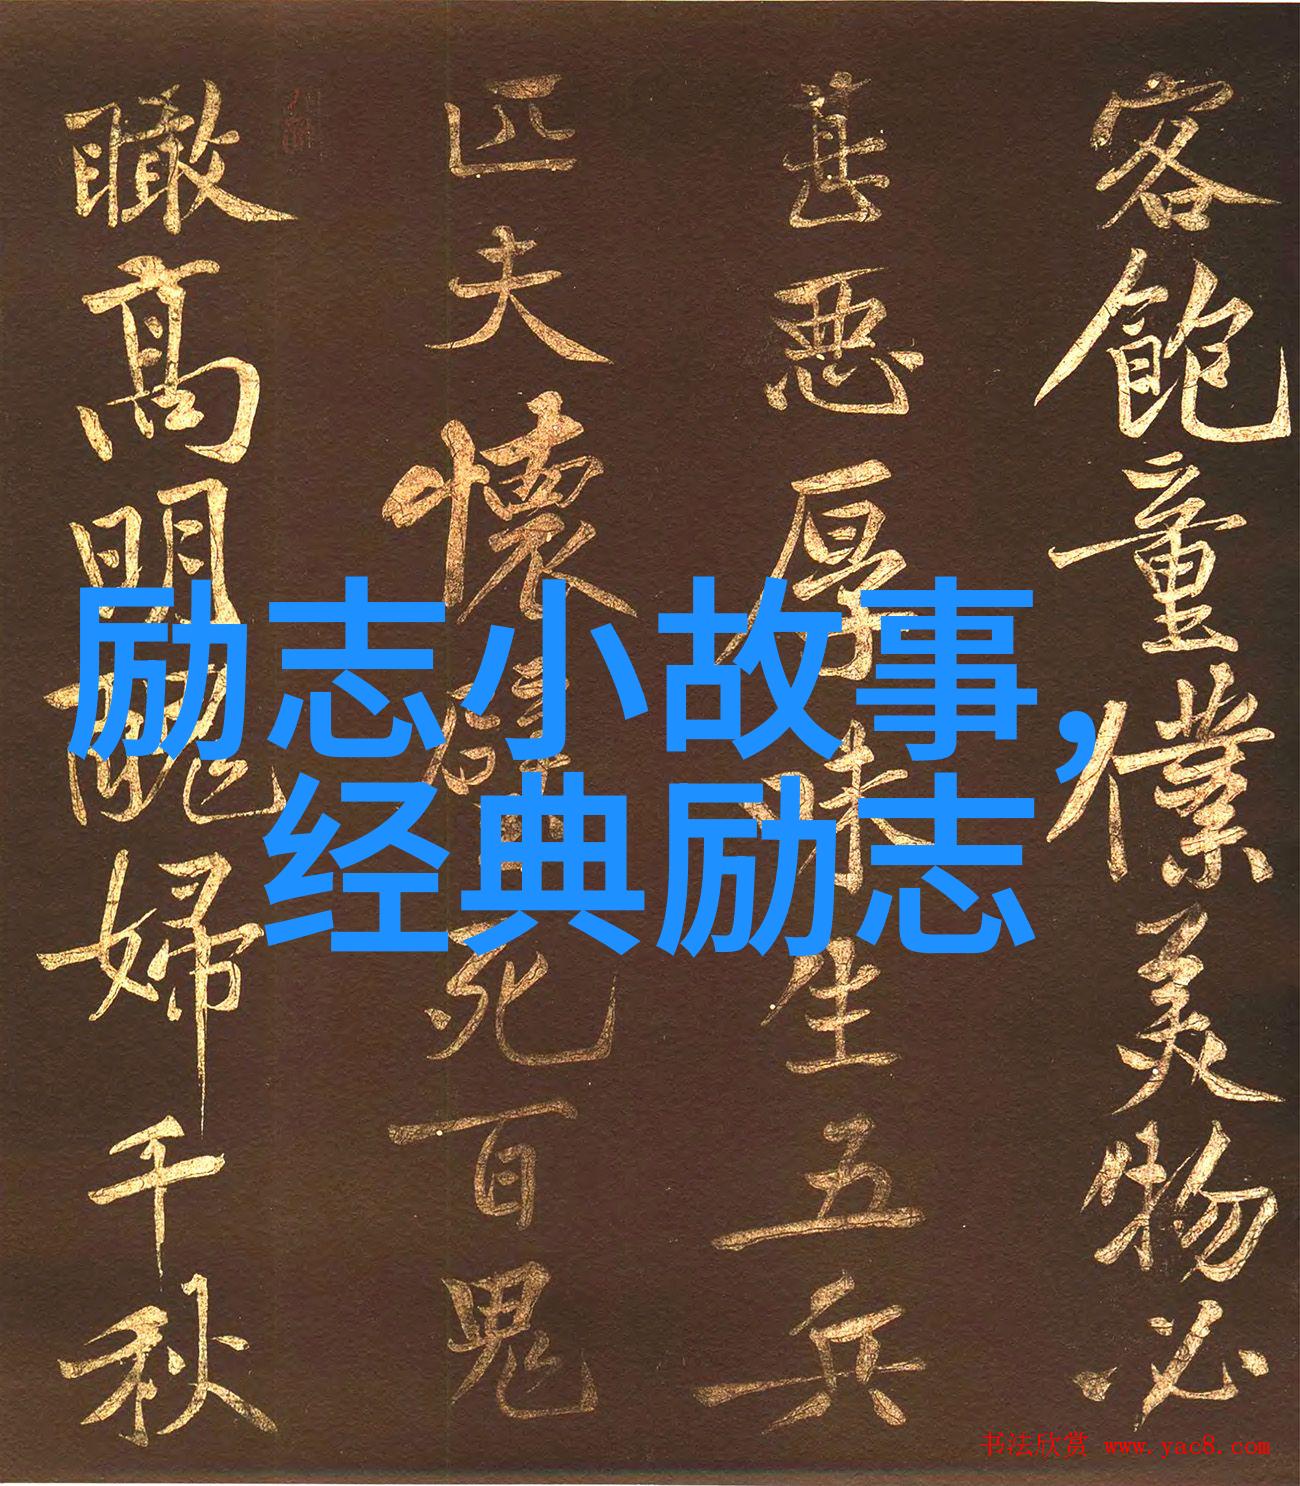 客飽童僕美物必
甚惡厚味生五兵
匹夫懷璧死百鬼
瞰高明醜婦千秋
励志小故事，
经典励志
书法欣赏 www.yac8.com